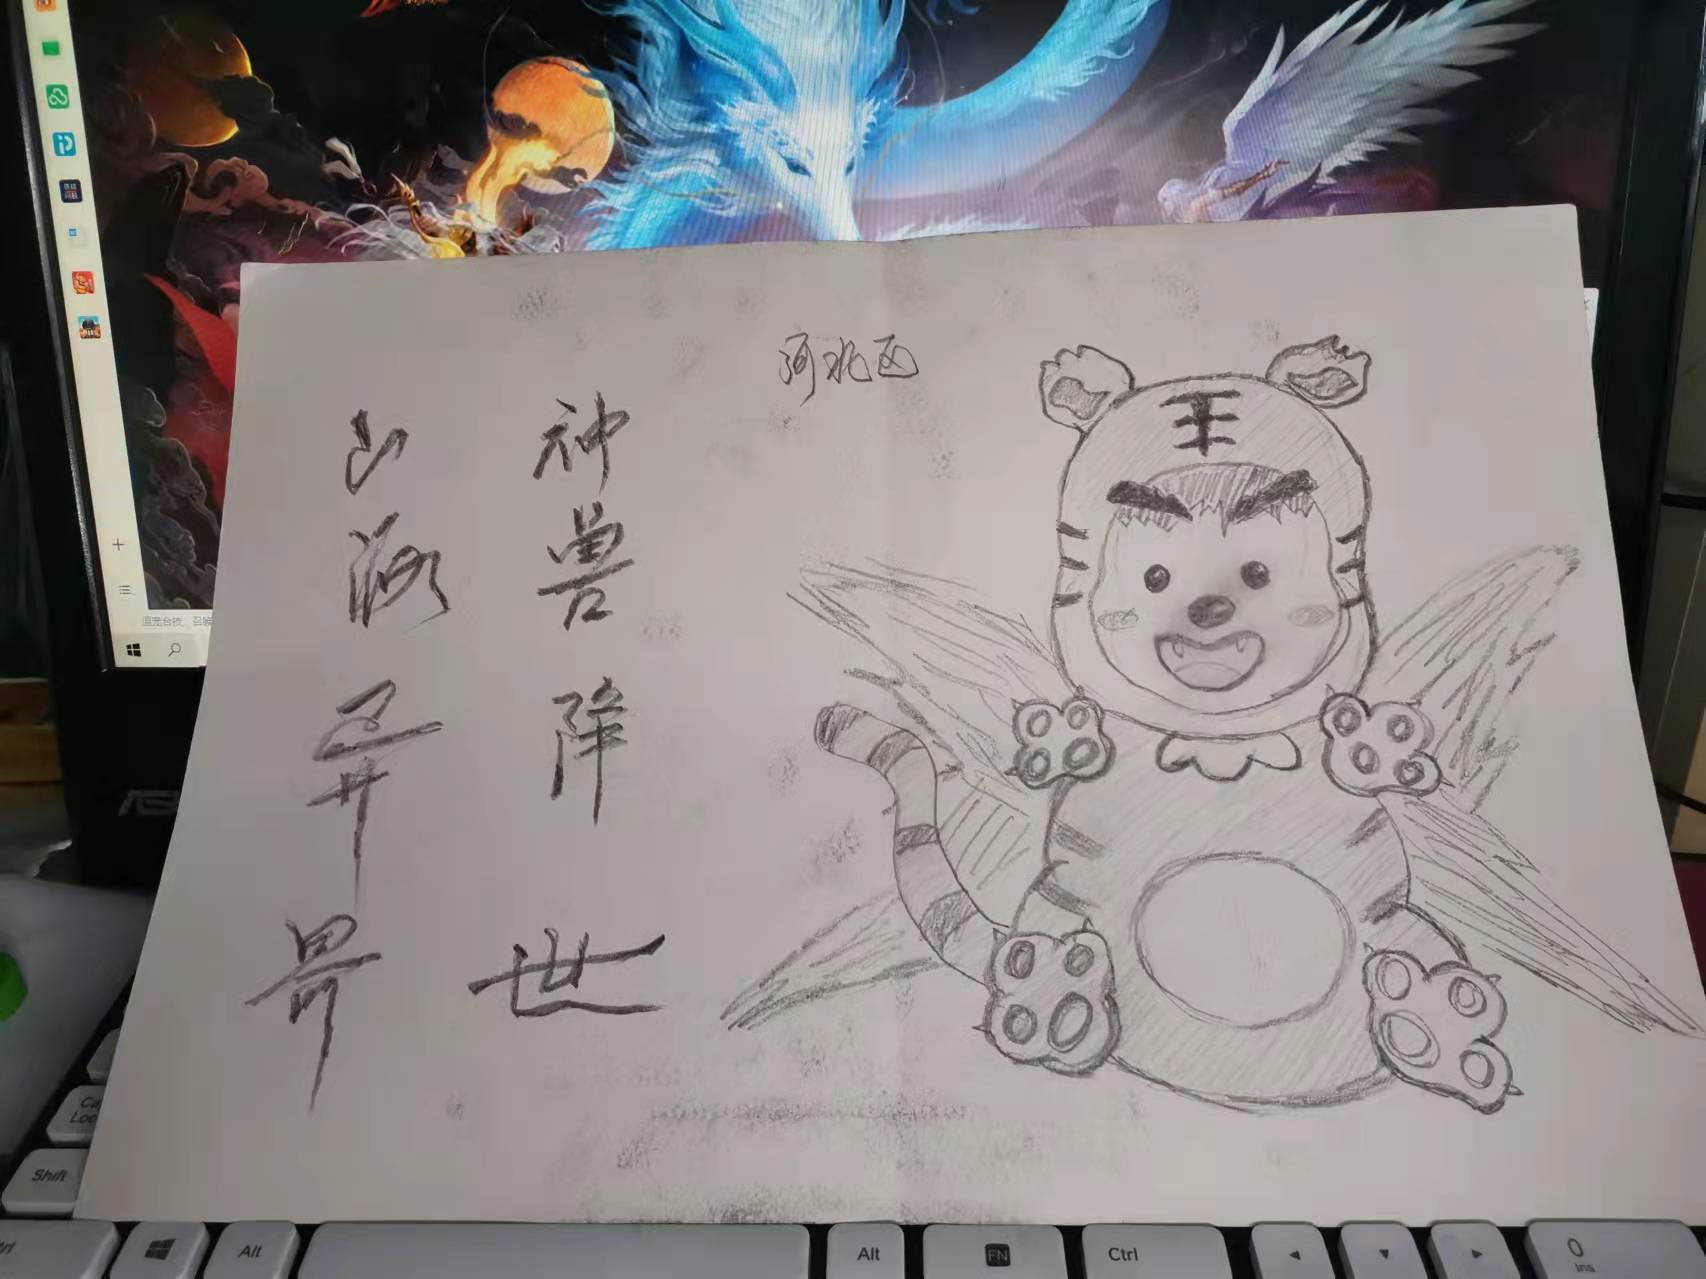 河北区
神兽降世
山海异界
王
Shift
Alt
Alt
FN
Ctrl
0
Ins